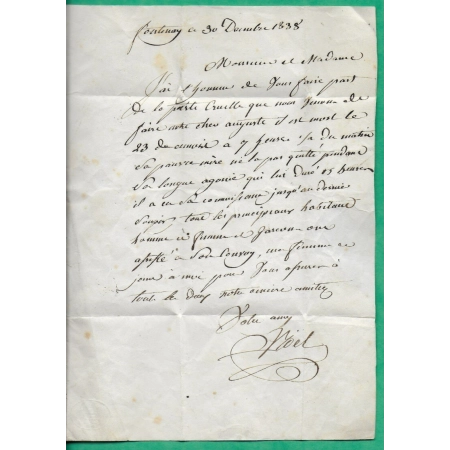 fontenay ce 30 Decembre 1838
Monsieur et Madame
J'ai l'honneur de Vous faire part
de la perte Cruelle que nous venons de
faire notre cher auguste il est mort le
23 du courir à 7 heure du matin
Sa pauvre mère ne la pas quitté pendant
Sa longue agonie qui lui duré 15 heures
il a eu Sa connoissance jusqu'au dernier
Soupir tout les principaux habitant
homme et femme et garcon ont
assisté à Son Convoy, ma femme ce
joint à moi pour Vous assurer à
tout les deux notre sincere amitiez
Votre amy
Noël